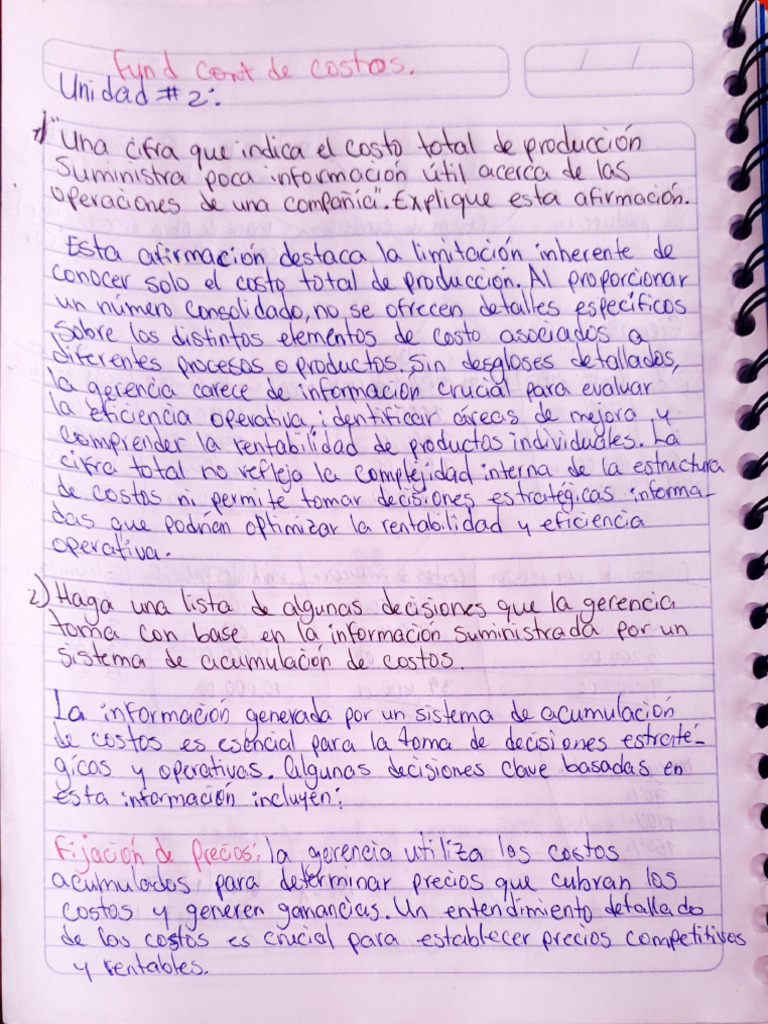 Fund Cont de costos.
Unidad # 2:
1) "Una cifra que indica el costo total de producción
Suministra poca información útil acerca de las
operaciones de una compañía". Explique esta afirmación.
Esta afirmación destaca la limitación inherente de
conocer solo el costo total de producción. Al proporcionar
un número consolidado, no se ofrecen detalles específicos
sobre los distintos elementos de costo asociados a
diferentes procesos o productos. Sin desgloses detallados,
la gerencia carece de información crucial para evaluar
la eficiencia operativa, identificar áreas de mejora y
comprender la rentabilidad de productos individuales. La
cifra total no refleja la complejidad interna de la estructura
de costos ni permite tomar decisiones estratégicas informa-
das que podrían optimizar la rentabilidad y eficiencia
operativa.
2) Haga una lista de algunas decisiones que la gerencia
toma con base en la información suministrada por un
sistema de acumulación de costos.
La información generada por un sistema de acumulación
de costos es esencial para la toma de decisiones estraté-
gicas y operativas. Algunas decisiones clave basadas en
esta información incluyen:
Fijación de precios: la gerencia utiliza los costos
acumulados para determinar precios que cubran los
costos y generen ganancias. Un entendimiento detallado
de los costos es crucial para establecer precios competitivos
y rentables.